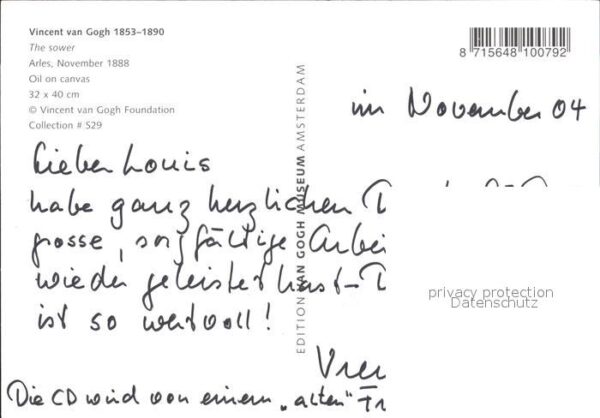 Vincent van Gogh 1853–1890
The sower
Arles, November 1888
Oil on canvas
32 x 40 cm
© Vincent van Gogh Foundation
Collection # S29
8 715648 100792
EDITION VAN GOGH MUSEUM AMSTERDAM
im November 04
Lieber Louis
habe ganz herzlichen
grosse, sorgfältige
wieder geleistet hast –
ist so wertvoll!
Die CD wird von einem „alten"
privacy protection
Datenschutz